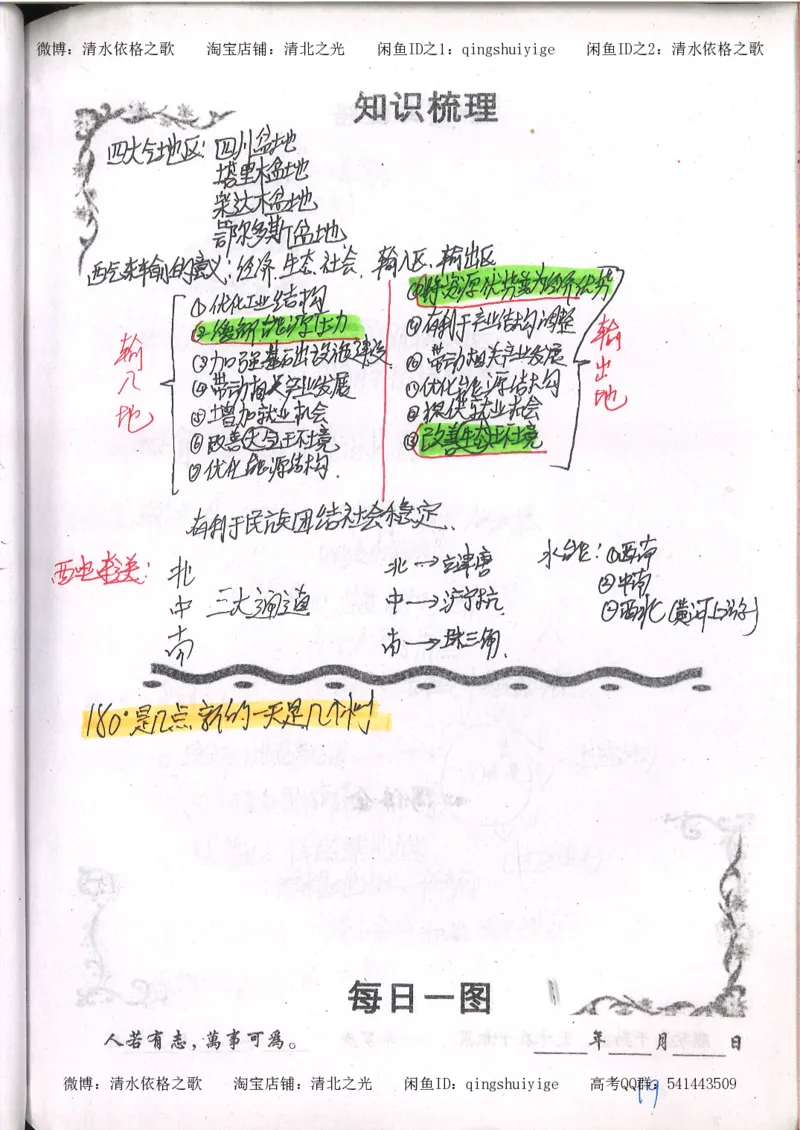 微博：清水依格之歌 淘宝店铺：清北之光 闲鱼ID之1：qingshuiyige 闲鱼ID之2：清水依格之歌
知识梳理
四大气地区：四川盆地
塔里木盆地
柴达木盆地
鄂尔多斯盆地
西气东输的意义：经济、生态、社会、输入区、输出区
输入地
①优化工业结构
②缓解能源压力
③加强基础设施建设
④带动相关产业发展
⑤增加就业机会
⑥改善大气环境
⑦优化能源结构.
①将资源优势变为经济优势
②有利于产业结构调整
带动相关产业发展
优化能源结构
提供就业机会
改善生态环境
输出地
有利于民族团结社会稳定.
西电东送：
北
中 三大通道
南
北→京津唐
中→沪宁杭
南→珠三角.
水能：①西南
②中南
③西北(黄河上游)
180°是几点新的一天是几个小时
每日一图
人若有志，萬事可爲。 年 月 日
微博：清水依格之歌 淘宝店铺：清北之光 闲鱼ID：qingshuiyige 高考QQ群：541443509